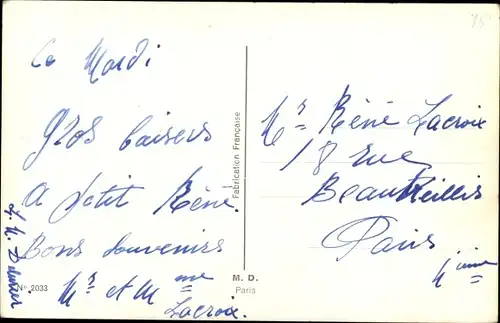 Ce Mardi
Gros baisers
a petit Réné.
Bons souvenirs
Mr et Mme
Lacroix.
No 2033
Fabrication Française
M. D.
Paris
Mr Réné Lacroix
18 rue
Beautreillis
Paris
4ième